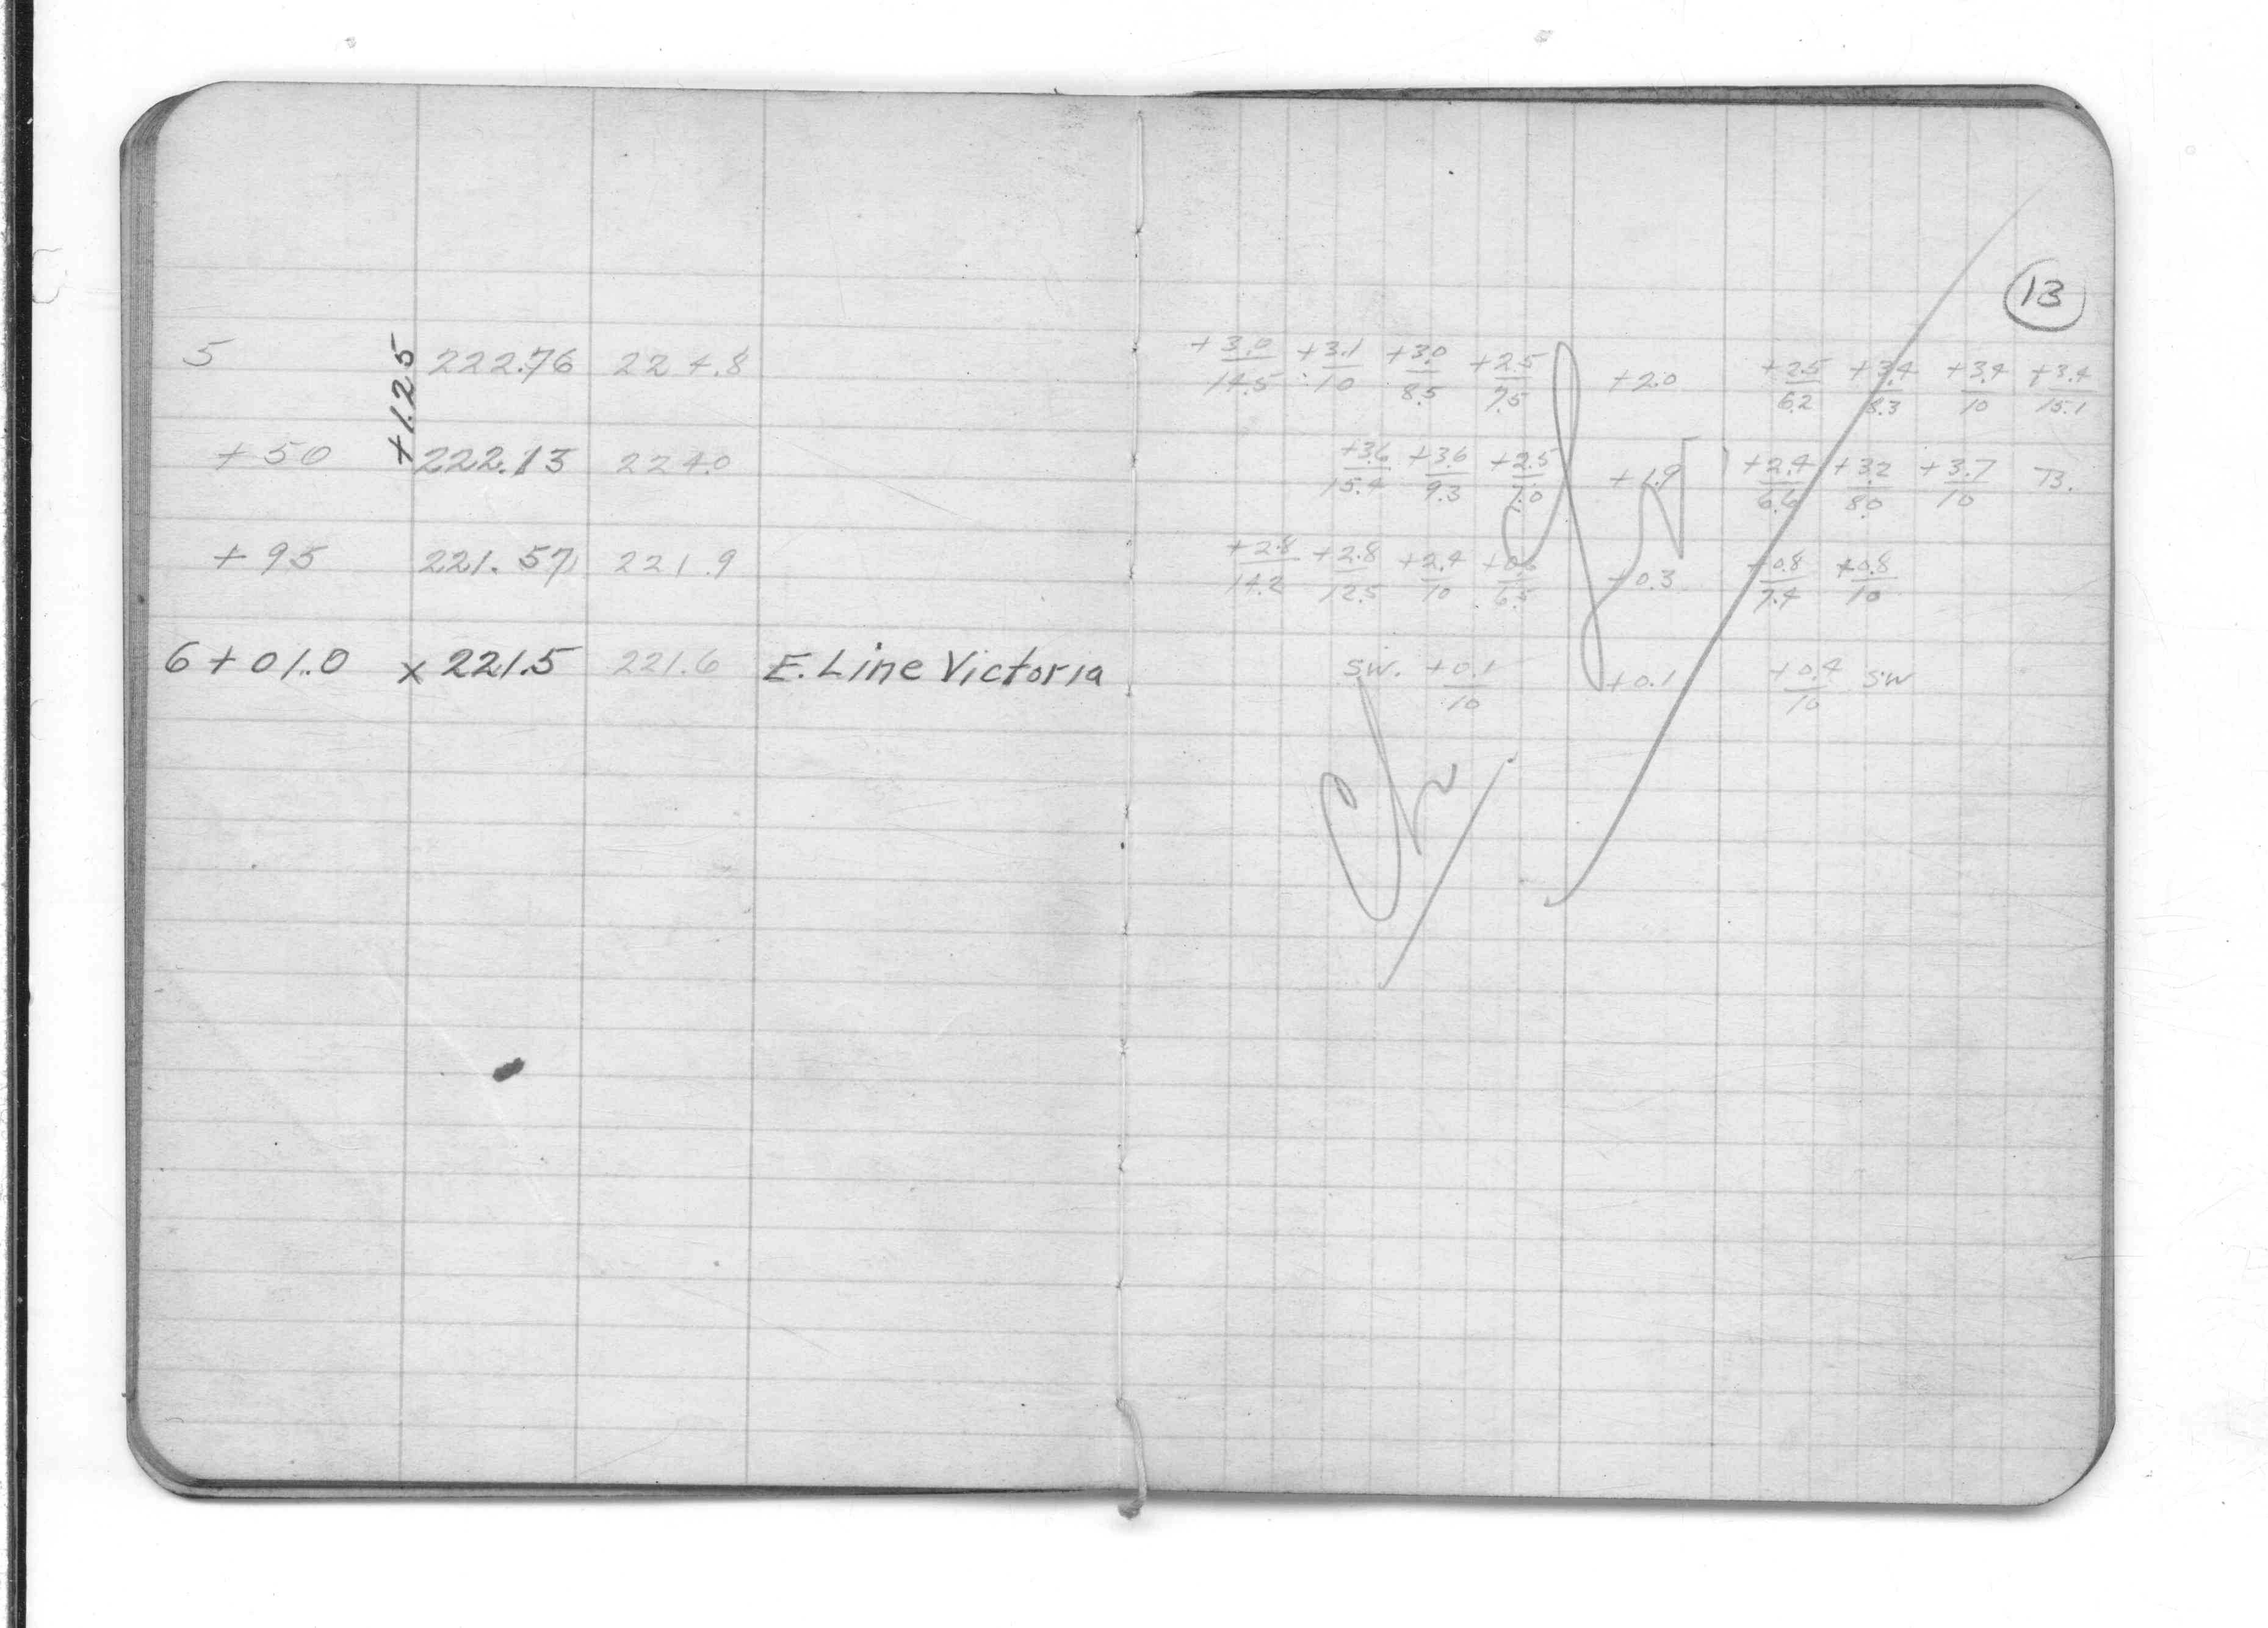 13
5 +1.25 222.76 224.8 +3.0/14.5 +3.1/10 +3.0/8.5 +2.5/7.5 +2.0 +2.5/6.2 +3.4/8.3 +3.4/10 +3.4/15.1
+50 222.13 224.0 +3.6/15.4 +3.6/9.3 +2.5/7.0 +1.9 +2.4/6.6 +3.2/8.0 +3.7/10 B.
+95 221.57 221.9 +2.8/14.2 +2.8/12.5 +2.4/10 6.5 +0.3 +0.8/7.4 +0.8/10
6+01.0 x 221.5 221.6 E. Line Victoria sw. +0.1/10 +0.1 +0.4/10 sw